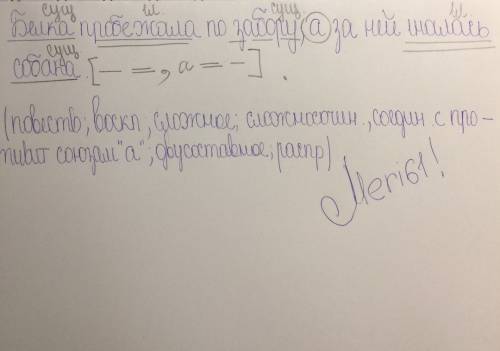 сущ гл сущ гл
Белка пробежала по забору, а за ней гналась
сущ
собака. [— =, а = —].
(повеств; воскл; сложное; сложносочин., соедин. с про-
тивит союзом "а"; двусоставное, распр)
Meri61!